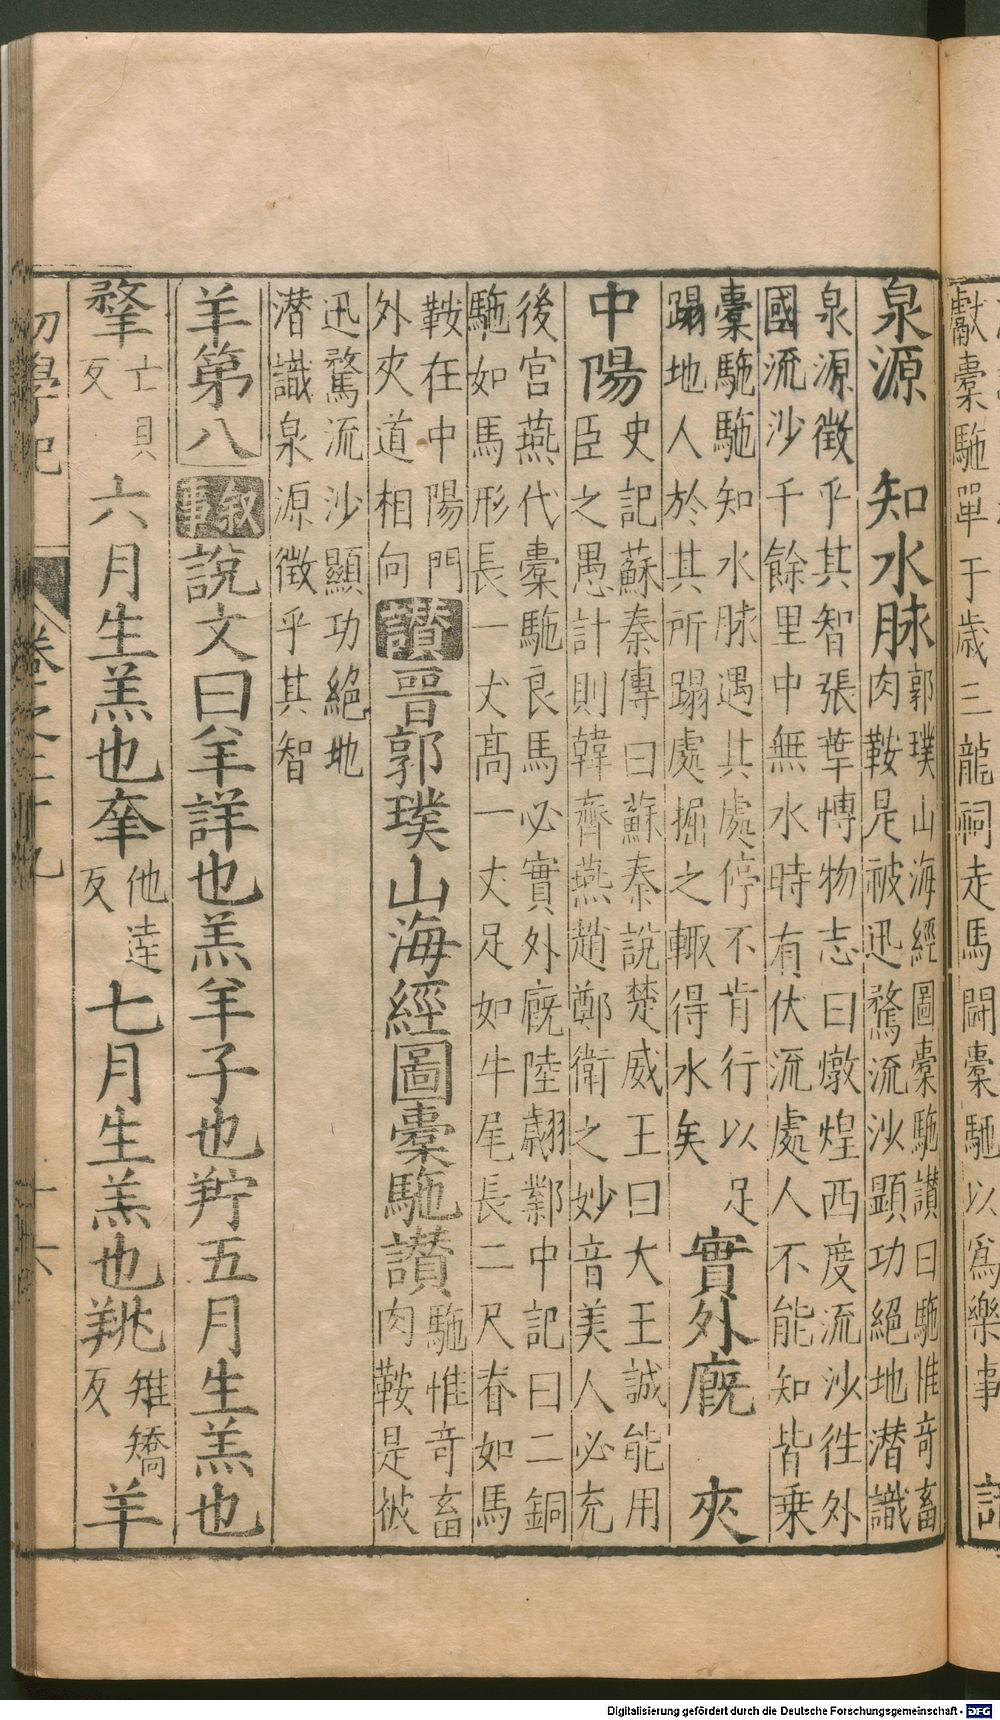 獻橐駞單于歳三龍祠走馬鬪橐駞以爲樂事
泉源　知水脉郭璞山海經圖橐駞讃曰駞惟奇畜
肉鞍是被迅騖流沙顯功絕地潜識
泉源微乎其智張華慱物志曰燉煌西度流沙徃外
國流沙千餘里中無水時有伏流處人不能知皆乗
橐駞駞知水脉遇其處停不肯行以足
蹋地人於其所蹋處掘之輙得水矣　實外廐　夾
中陽史記蘇秦傳曰蘇秦說楚威王曰大王誠能用
臣之愚計則韓齊燕趙鄭衛之妙音美人必充
後宫燕代橐駞良馬必實外廐陸翽鄴中記曰二銅
駞如馬形長一丈髙一丈足如牛尾長二尺脊如馬
鞍在中陽門
外夾道相向　讃　晉郭璞山海經圖橐駞讃駞惟奇畜
肉鞍是被
迅騖流沙顯功絕地
潜識泉源微乎其智
羊第八　叙事　說文曰羊詳也羔羊子也羜五月生羔也
𦎧亡貝反六月生羔也羍他達反七月生羔也羜雉矯反羊
初學記　卷之二十九　十六
Digitalisierung gefördert durch die Deutsche Forschungsgemeinschaft - DFG